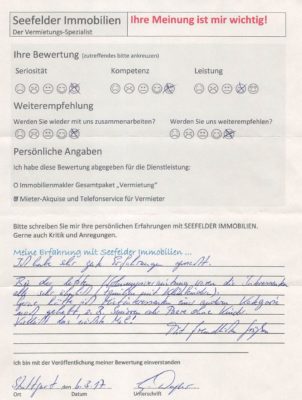 Seefelder Immobilien
Der Vermietungs-Spezialist
Ihre Meinung ist mir wichtig!
Ihre Bewertung (zutreffendes bitte ankreuzen)
Seriosität Kompetenz Leistung
Weiterempfehlung
Werden Sie wieder mit uns zusammenarbeiten? Werden Sie uns weiterempfehlen?
Persönliche Angaben
Ich habe diese Bewertung abgegeben für die Dienstleistung:
O Immobilienmakler Gesamtpaket „Vermietung"
Mieter-Akquise und Telefonservice für Vermieter
Bitte schreiben Sie mir Ihre persönlichen Erfahrungen mit SEEFELDER IMMOBILIEN.
Gerne auch Kritik und Anregungen.
Meine Erfahrung mit Seefelder Immobilien ...
Ich habe sehr gute Erfahrungen gemacht.
Bei der letzten Wohnungsvermietung waren die Interessenten
alle sehr (Familie mit Kleinkind);
gerne hätte ich Mietinteressenten einer anderen Kategorie
auch gehabt, z.B. Senioren oder Paare ohne Kinder.
Vielleicht das nächste Mal!
Mit freundlichen Grüßen
Ich bin mit der Veröffentlichung meiner Bewertung einverstanden
Stuttgart, 6.3.17
Ort Datum Unterschrift